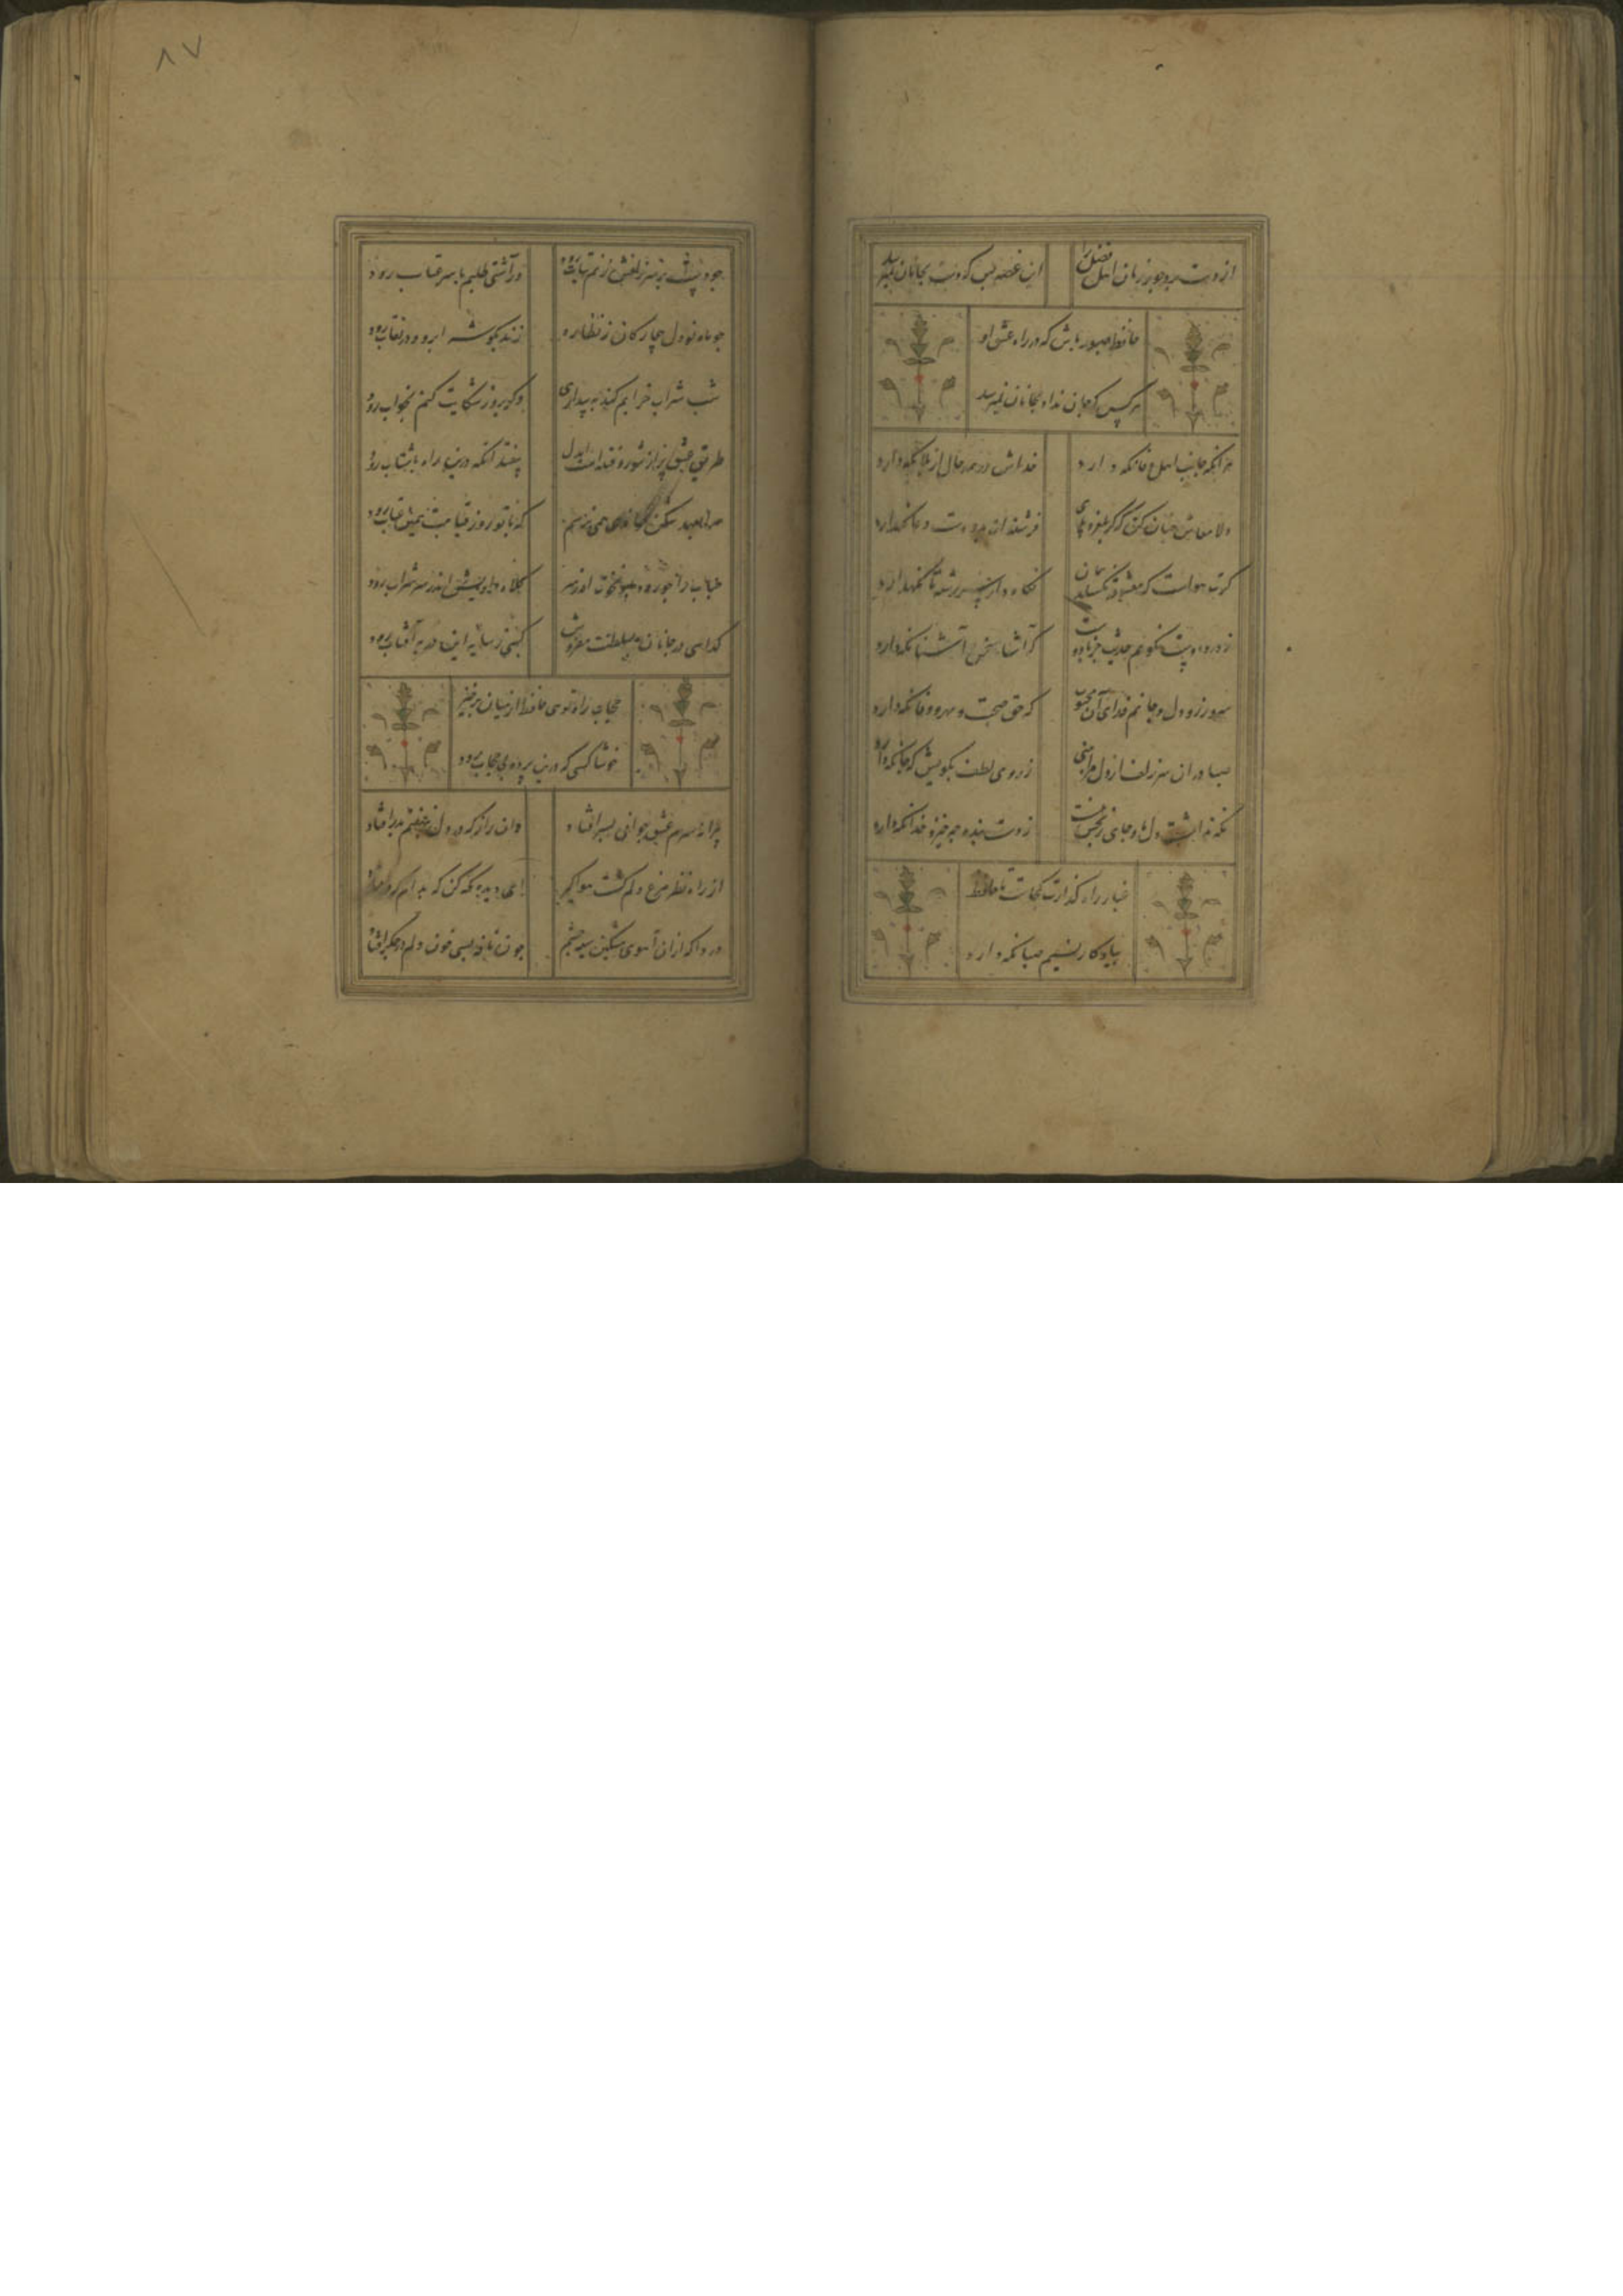 از دستبرد جور زمان اهل فضل را این غصه بس که دست بجانان نمیرسد
حافظ صبور باش که در راه عشق او
هر کس که جان نداد بجانان نمیرسد
هر آنکه جانب اهل وفا نکه دارد خداش در همه حال از بلا نکه دارد
دلا معاش چنان کن که کر بلغزد پای فرشته ات بدو دست دعا نکهدارد
کرت هواست که معشوق نکسلد پیمان نکاه دار سر رشته تا نکهدارد
ز درد دوست نکویم حدیث جز با دوست که آشنا سخن آشنا نکه دارد
سر و زر و دل و جانم فدای آن محبوب که حق صحبت و مهر و وفا نکه دارد
صبا در آن سر زلف ار دل مرا بینی ز روی لطف بکویش که جا نکه دارد
نکه نداشت دل ما و جای رنجش نیست ز دست بنده چه خیزد خدا نکه دارد
غبار راه کذارت کجاست تا حافظ
بیادکار نسیم صبا نکه دارد
۸۷
چو دست بر سر زلفش زنم بتاب رود ور آشتی طلبم با سر عتاب رود
چو ماه نو دل بیچارکان ز نظاره زند بکوشه ابرو و در نقاب رود
شب شراب خرابم کند به بیداری وکر بروز شکایت کنم بخواب رود
طریق عشق پر از شور و فتنه است ایدل بیفتد آنکه درین راه با شتاب رود
که با تو روز قیامت همین عتاب رود
حباب را چو فتد باد نخوت اندر سر کلاه داریش اندر سر شراب رود
کدایی در جانان بسلطنت مفروش کسی ز سایه این در به آفتاب رود
حجاب راه تویی حافظ از میان برخیز
خوشا کسی که درین پرده بی حجاب رود
پیرانه سرم عشق جوانی بسر افتاد وان راز که در دل بنهفتم بدر افتاد
از راه نظر مرغ دلم کشت هوا کیر ای دیده نکه کن که بدام که در افتاد
دردا که از آن آهوی مشکین سیه چشم چون نافه بسی خون دلم در جکر افتاد